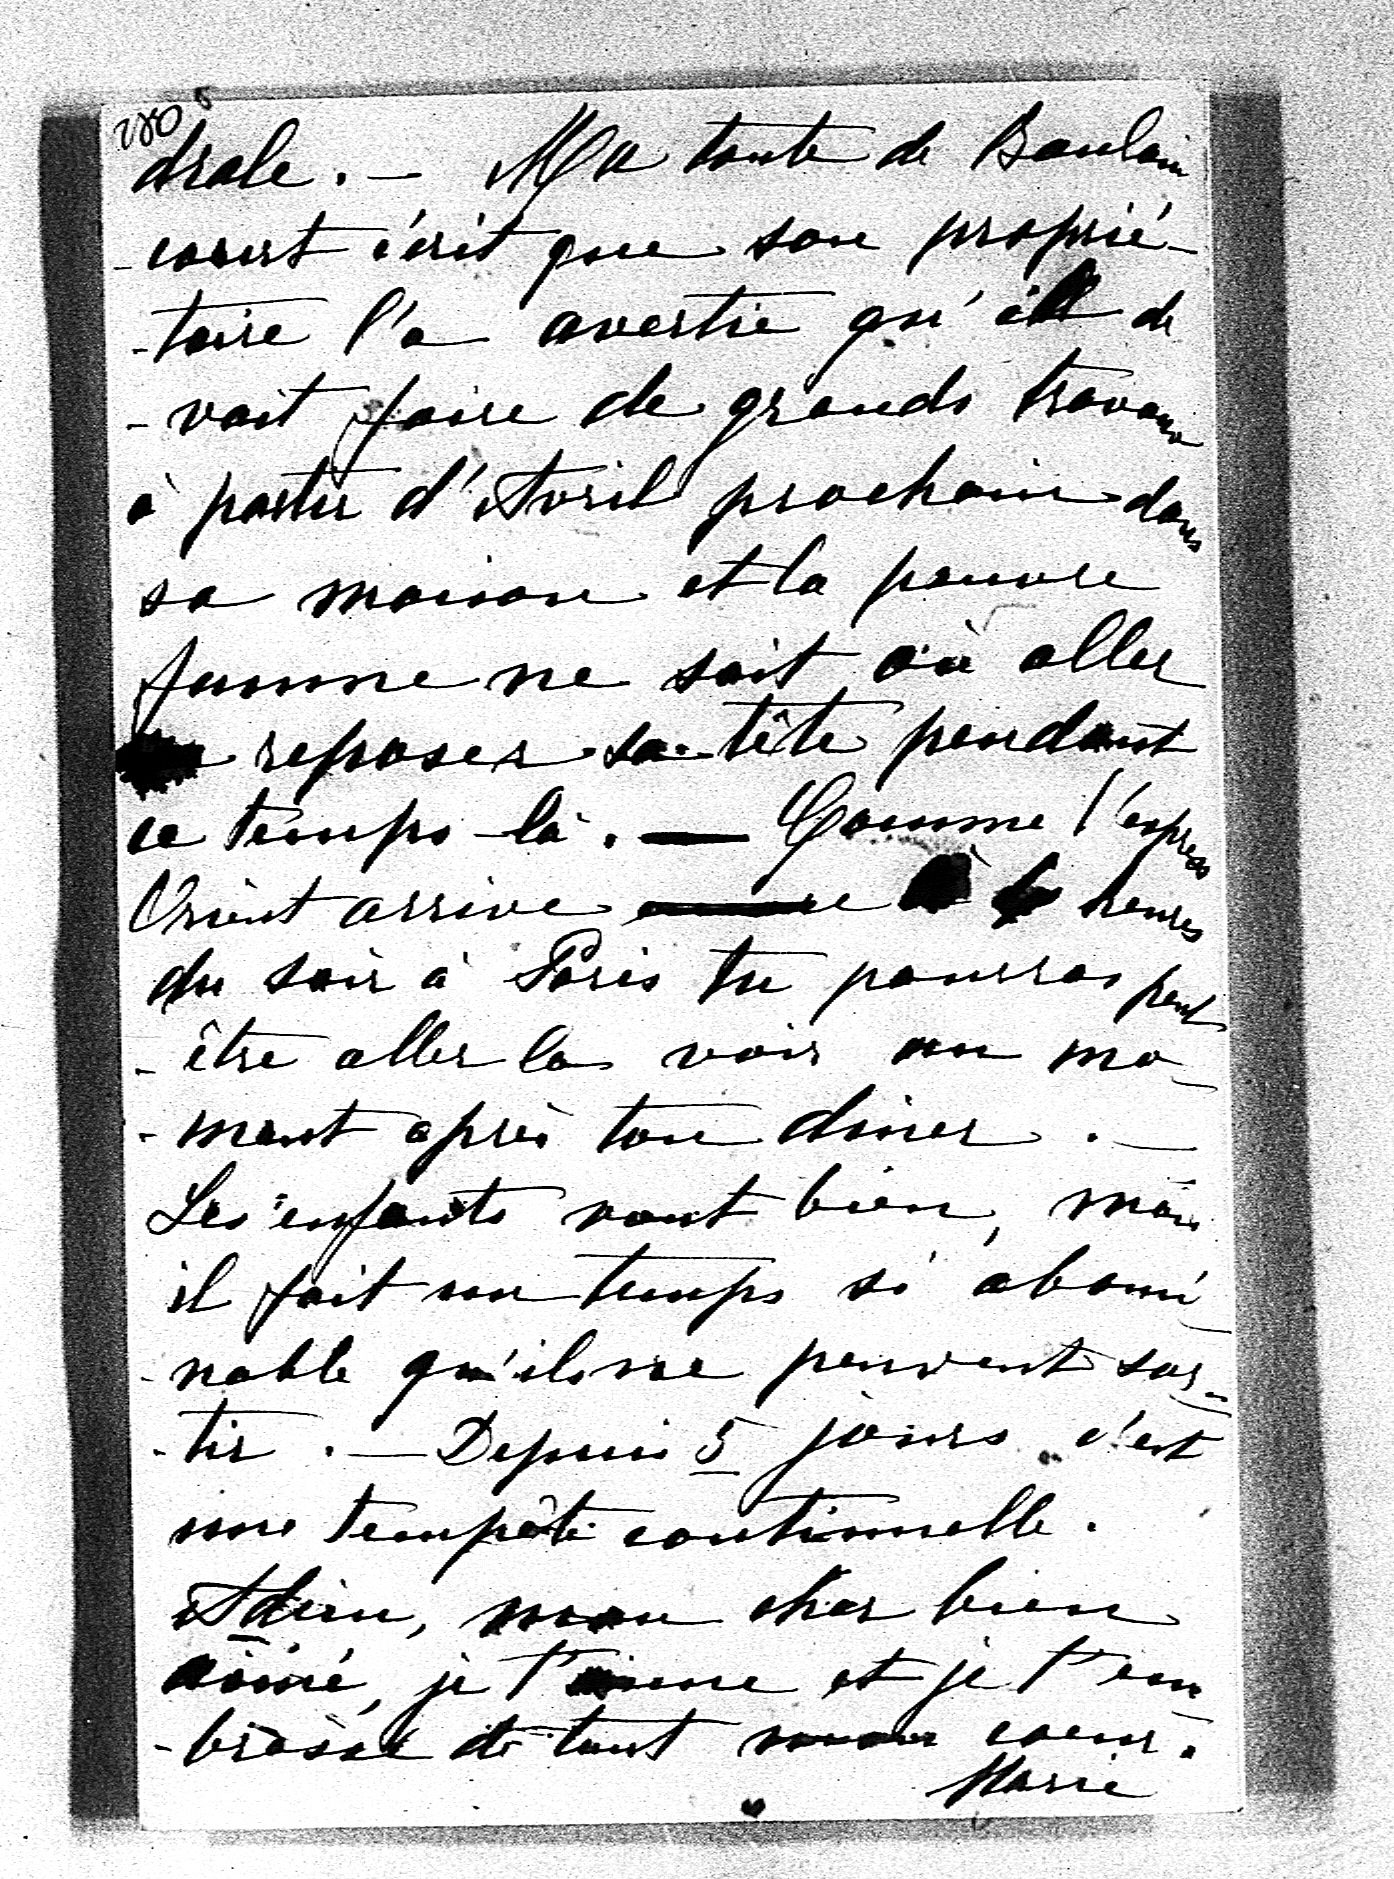 280
drale. — Ma tante de Boulain
-court écrit que son proprié-
-taire l'a avertie qu'il de
-vait faire de grands travaux
à partir d'Avril prochain dans
sa maison et la pauvre
femme ne sait où aller
reposer sa tête pendant
ce temps-là. — Comme l'express
Orient arrive à 6 heures
du soir à Paris tu pourras peut
-être aller la voir un mo-
-ment après ton diner. —
Les enfants vont bien, mais
il fait un temps si abomi
-nable qu'ils ne peuvent sor-
-tir. — Depuis 5 jours c'est
une tempête continuelle.
Adieu, mon cher bien
aimé, je t'aime et je t'em
-brasse de tout mon coeur.
Marie